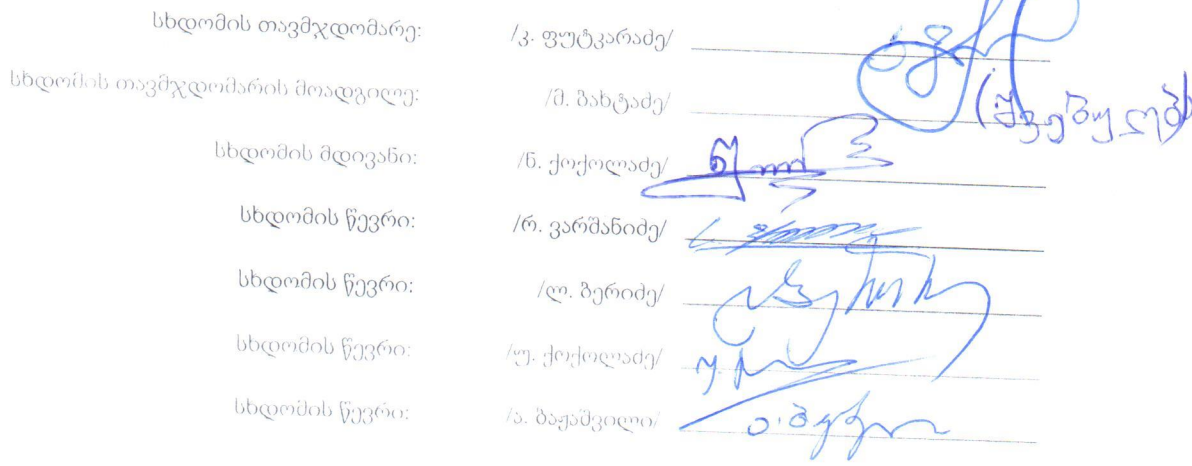 სხდომის თავმჯდომარე: /კ. ფუტკარაძე/
სხდომის თავმჯდომარის მოადგილე: /მ. ბახტაძე/ (შვებულებ
სხდომის მდივანი: /ნ. ქოქოლაძე/
სხდომის წევრი: /რ. ვარშანიძე/
სხდომის წევრი: /ლ. ბერიძე/
სხდომის წევრი: /უ. ქოქოლაძე/
სხდომის წევრი: /ა. ბაჟაშვილი/